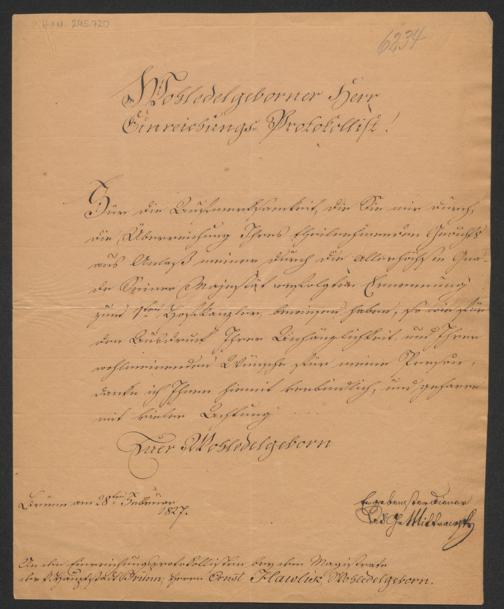 H.I.N. 245.720
6234
Wohledelgeborner Herr
Einreichungs Protokollist!
Für die Aufmerksamkeit, die Sie mir durch
die Überreichung Ihres theilnehmenden Gedichts
aus Anlaß meiner durch die allerhöchste Gna-
de Seiner Majestät erfolgten Ernennung
zum Hofkanzler, bewiesen haben, so wie für
den Ausdruck Ihrer Anhänglichkeit und Ihrer
wohlmeinenden Wünsche für meine Person,
danke ich Ihnen hiemit verbindlich, und geharre
mit vieler Achtung
Euer Wohledelgeborn
Brünn am 28ten Februar
1827.
Ergebenster Diener
Mittrowsky
An den Einreichungsprotokollisten bey dem Magistrate
der Hauptstadt Brünn, Herrn Ernst Hawlik Wohledelgeborn.